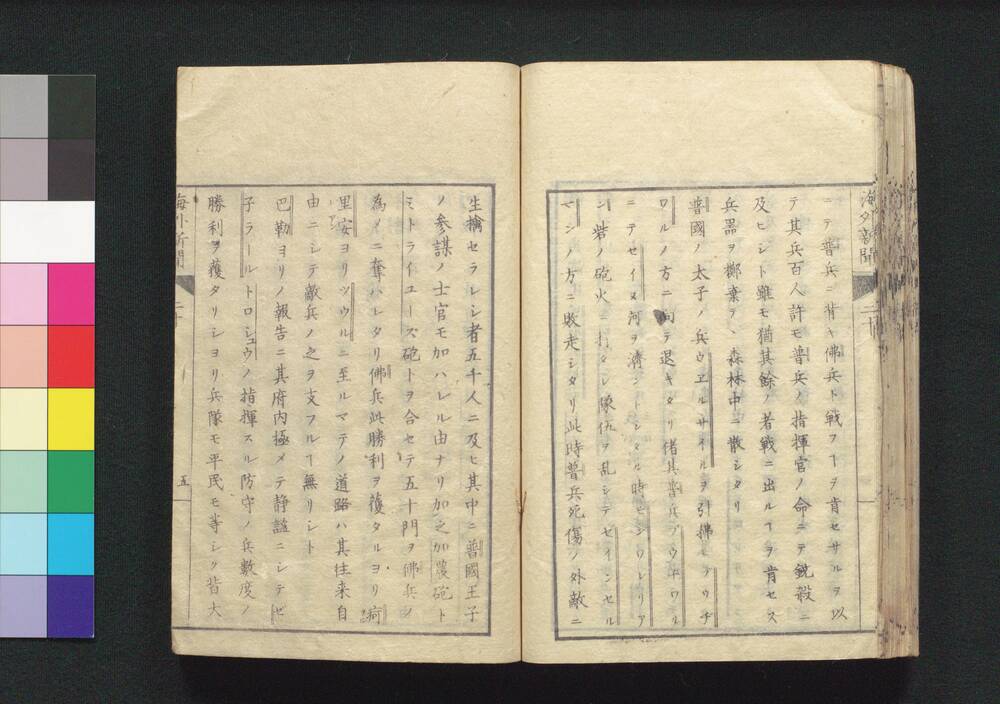 海外新聞
二十
ニテ普兵ニ背キ佛兵ト戰フヿヲ肯セサルヲ以
テ其兵百人許モ普兵ノ指揮官ノ命ニテ銃殺ニ
及ヒシト雖モ猶其餘ノ者戰ニ出ルヿヲ肯セス
兵器ヲ擲棄テ、森林中ニ散シタリ
普國ノ太子ノ兵ウヱルサイルヲ引拂ヒ
ノ方ニ向テ退キタリ偖其普兵
ニテセイヌ河ヲ濟ントシタル時
砦ノ砲火ニ打タレ隊伍ヲ乱シテセインセル
マンノ方ニ敗走シタリ此時普兵死傷ノ外敵ニ
生擒セラレシ者五千人ニ及ヒ其中ニ普國王子
ノ参謀ノ士官モ加ハレル由ナリ加之加農砲ト
ミトライユース砲トヲ合セテ五十門ヲ佛兵ノ
為メニ奪ハレタリ佛兵此勝利ヲ獲タルヨリ荷
里安ヨリツウルニ至ルマテノ道路ハ其往来自
由ニシテ敵兵ノ之ヲ支フルヿ無リシト
巴勒ヨリノ報告ニ其府内極メテ静謐ニシテゼ
子ラールトロシュウノ指揮スル防守ノ兵數度ノ
勝利ヲ獲タリシヨリ兵隊モ平民モ等シク皆大
海外新聞
二十
五